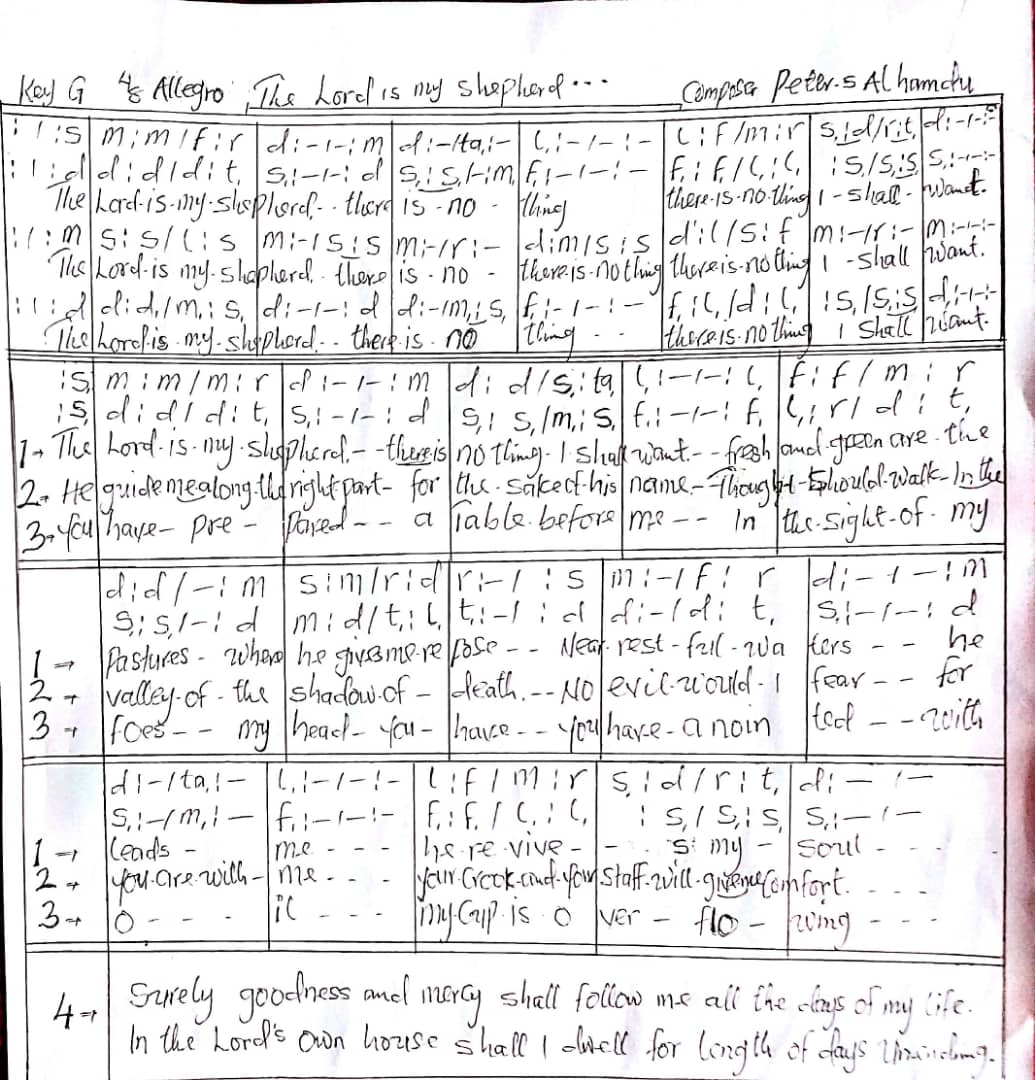 Key G 4/8 Allegro The Lord is my shepherd... Composer Peter.s Alhamdu
: | : s | m : m / f : r | d : - | - : m | d : - / ta, : - | l, : - | - : - | l : f / m : r | s, : d / r : t, | d : - | - : -
: | : d | d : d / d : t, | s, : - | - : d | s, : s, / - : m, | f, : - | - : - | f, : f, / l, : l, | : s, / s, : s, | s, : - | - : -
The Lord-is-my-shepherd.- there is - no - thing there-is-no-thing I - shall - want.
: | : m | s : s / l : s | m : - | s : s | m : - / r : - | d : m / s : s | d' : l / s : f | m : - / r : - | m : - | - : -
The Lord-is my-shepherd. there is - no - there-is-nothing there is-nothing I - shall want.
: | : d | d : d, / m, : s, | d : - | - : d | d : - / m, : s, | f, : - | - : - | f, : l, / d : l, | : s, / s, : s, | d, : - | - : -
The Lord-is-my-shepherd.. there-is-no thing - - there-is-no thing I Shall want.
: s, | m : m / m : r | d : - | - : m | d : d / s, : ta, | l, : - | - : l, | f : f / m : r
: s, | d : d / d : t, | s, : - | - : d | s, : s, / m, : s, | f, : - | - : f, | l, : r / d : t,
1→ The Lord-is-my-shepherd.- - there is no thing- I shall want.- - fresh and-green are the
2→ He guide me along-the right part- for the-sake of-his name.- Thought-I-should-walk-In-the
3→ you have- pre - pared - - a Table-before me - - In the-sight-of- my
d : d / - : m | s : m / r : d | r : - | : s | m : - / f : r | d : - | - : m
s, : s, / - : d | m : d / t, : l, | t, : - | : d | d : - / d : t, | s, : - | - : d
1→ Pastures - where he gives me re pose - - Near- rest - full - wa ters - - he
2→ valley-of - the shadow-of - death. - - NO evil-would- I fear - - for
3→ foes - - my head- you - have - - you have - a noin ted - - with
d : - / ta, : - | l, : - | - : - | l : f / m : r | s, : d / r : t, | d : - | -
s, : - / m, : - | f, : - | - : - | f, : f, / l, : l, | : s, / s, : s, | s, : - | -
1→ leads - me - - - he-re-vive - - my - soul - - -
2→ you-are-with- me - - - your-Crook-and-your Staff-will-give me Comfort. - - -
3→ O - - - il - - - my-Cup is O ver - flo - wing - - -
4→ Surely goodness and mercy shall follow me all the days of my life.
In the Lord's own house shall I dwell for length of days